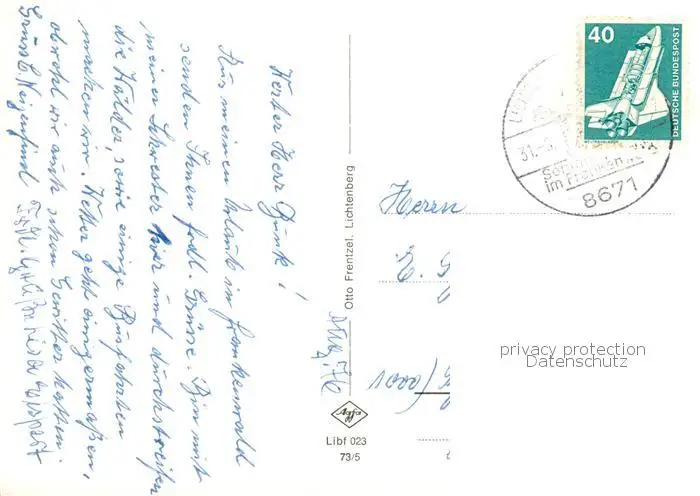 Werter Herr Funk!
Aus meinem Urlaub im Frankenwald
senden Ihnen frdl. Grüsse. Bin mit
meiner Schwester hier und durchstreifen
die Wälder, sowie einige Busfahrten
machen wir. Wetter geht einigermaßen,
obwohl wir auch schon Gewitter hatten.
Gruss
Aug. 76
Otto Frentzel, Lichtenberg
Agfa
Libf 023
73/5
40
DEUTSCHE BUNDESPOST
31.-8.
im Frankenwald
8671
Herrn
E.
privacy protection
Datenschutz